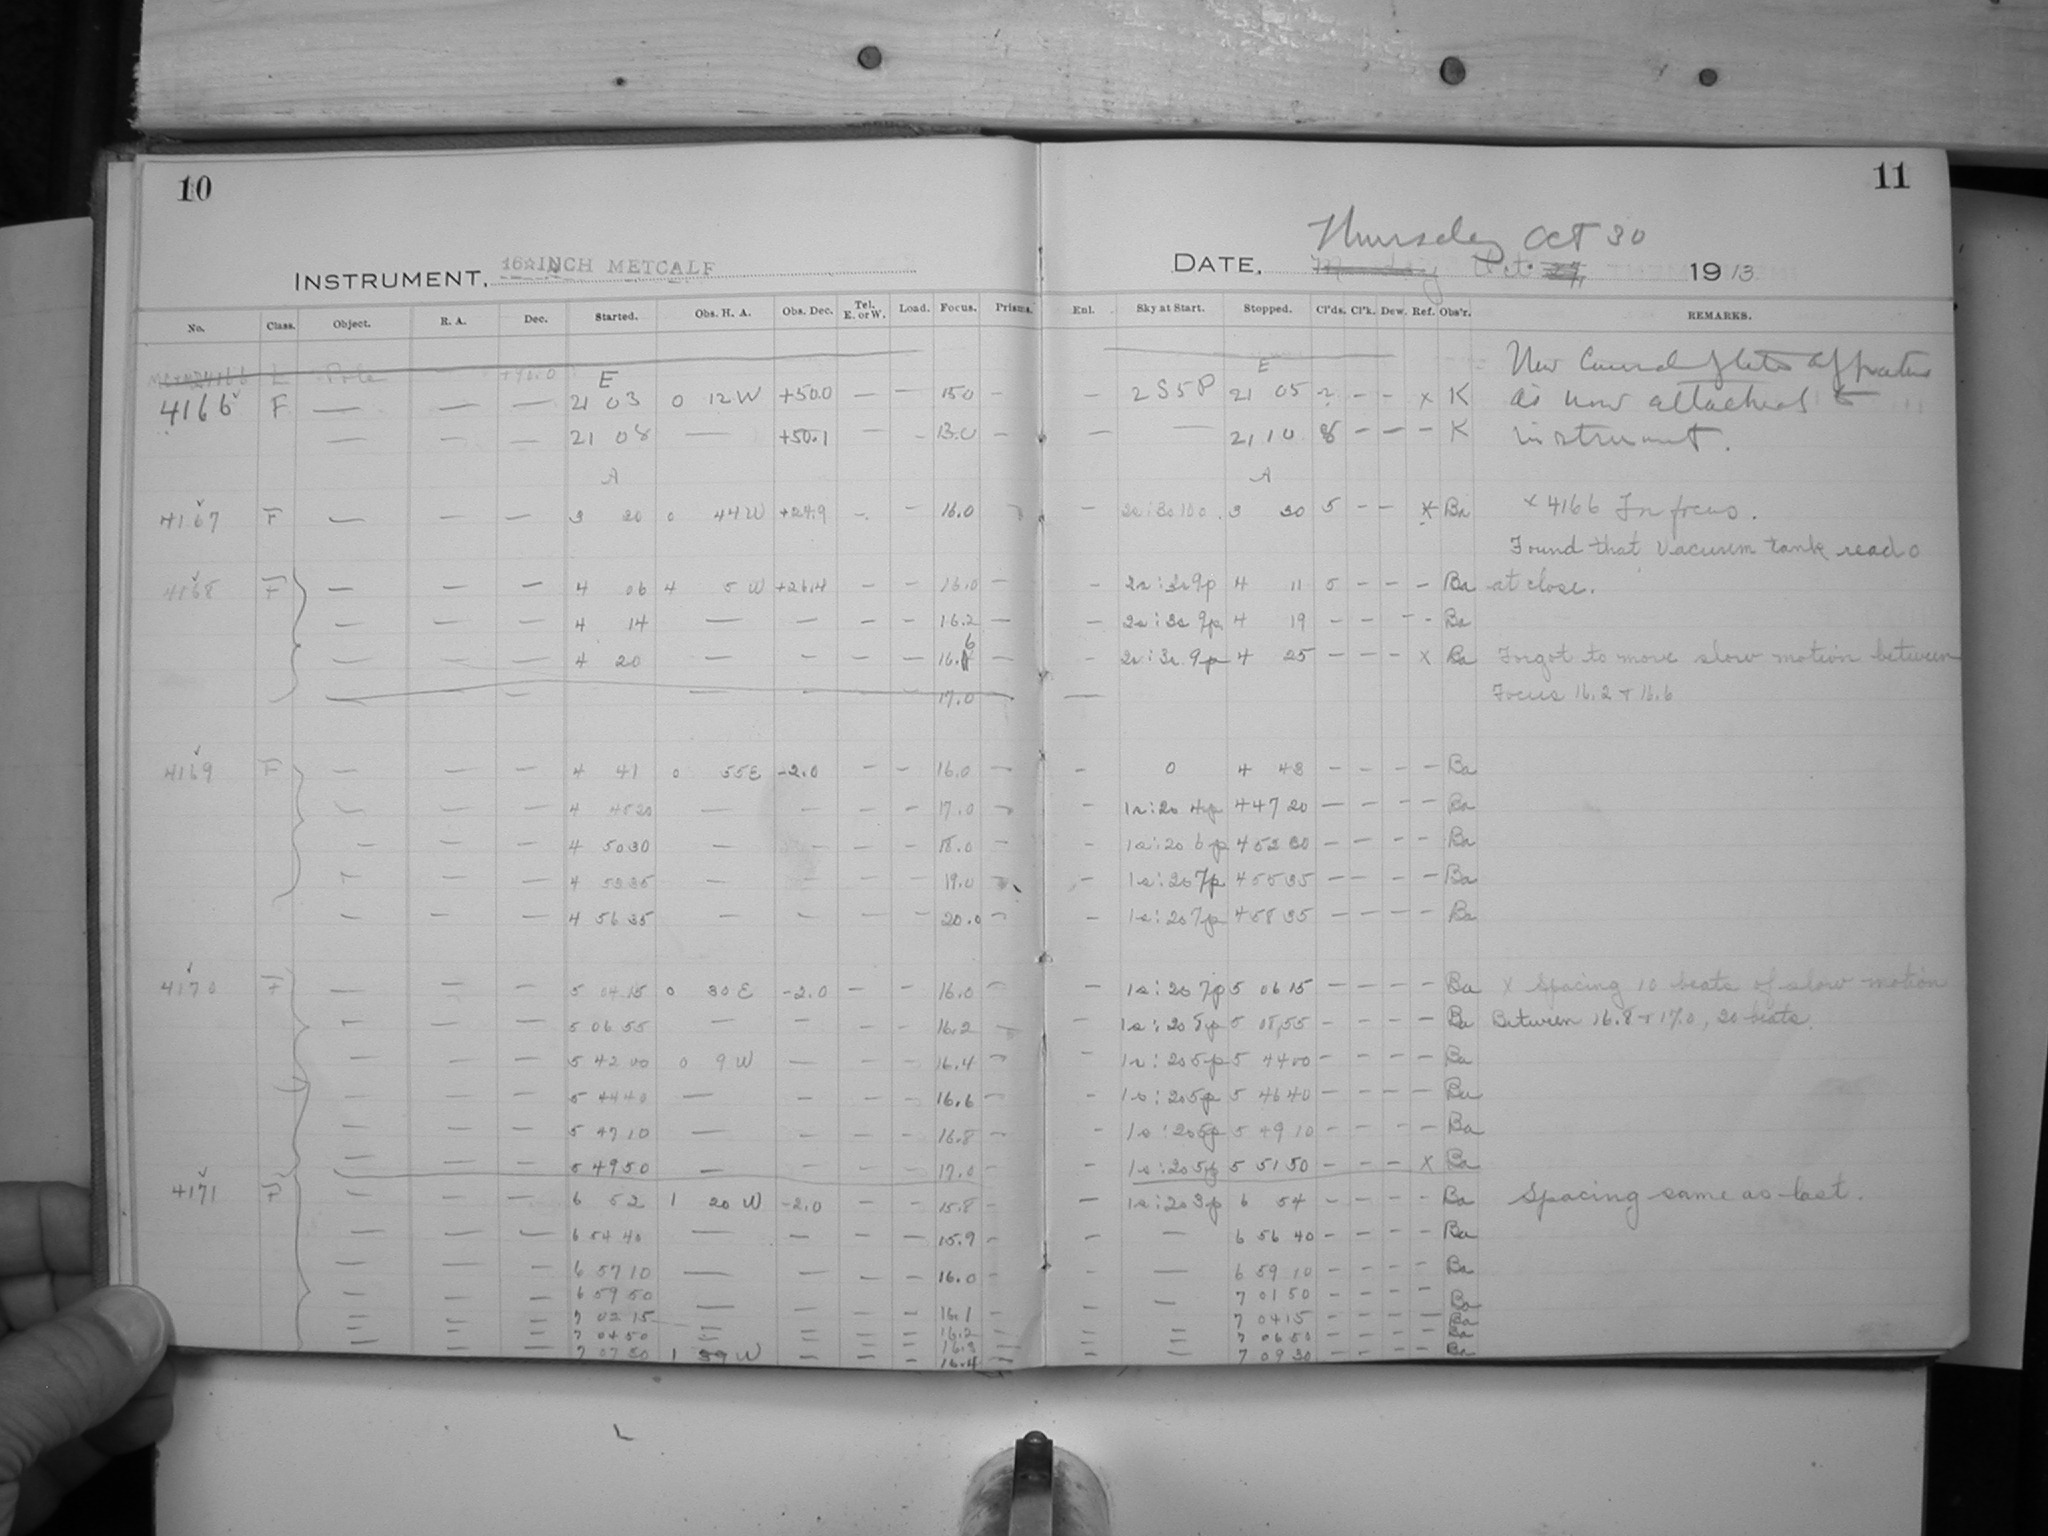 10
11
Thursday Oct 30
INSTRUMENT, 16 INCH METCALF
DATE, Monday Oct. 27, 1913
No. Class. Object. R. A. Dec. Started. Obs. H. A. Obs. Dec. Tel. E. or W. Load. Focus. Prisms. Enl. Sky at Start. Stopped. Cl'ds. Cl'k. Dew. Ref. Obs'r. REMARKS.
L Pole +90.0 E E New Curved plate apparatus
4166 F — — — 21 03 0 12 W +50.0 — — 15.0 — — 2 S 5 P 21 05 2 – – x K is now attached to
— — — 21 08 — +50.1 — - 13.0 — — — 21 10 8 – – – K instrument.
A A
4167 F — — — 3 20 0 44 W +24.9 – 16.0 — 3 30 5 – – x Ba x 4166 In focus.
Found that vacuum tank read 0
4168 F — — — 4 06 4 5 W +26.4 – – 16.0 – – 2s:3s9p 4 11 5 – – – Ba at close.
— — — 4 14 — — – – 16.2 — – 2s:3s 9p 4 19 – – – – Ba
— — — 4 20 — — – – 16.6 — – 2s:3s 9p 4 25 – – – x Ba Forgot to move slow motion between
— — — — — — — 17.0 — — Focus 16.2 + 16.6
4169 F — — — 4 41 0 55 E -2.0 – – 16.0 — – 0 4 43 – – – – Ba
— — — 4 45 20 — — – – 17.0 – – 1s:2s 4p 4 47 20 – – – – Ba
— — — 4 50 30 — — – – 18.0 – – 1s:2s 6p 4 52 30 – – – – Ba
— — — 4 53 35 — — – – 19.0 – – 1s:2s 7p 4 55 35 – – – – Ba
— — — 4 56 35 — — – – 20.0 – – 1s:2s 7p 4 58 35 – – – – Ba
4170 F — — — 5 04 15 0 30 E -2.0 – – 16.0 – – 1s:2s 7p 5 06 15 – – – – Ba x Spacing 10 beats of slow motion
— — — 5 06 55 — — – – 16.2 – – 1s:2s 5p 5 08 55 – – – – Ba Between 16.8 + 17.0, 20 beats.
— — — 5 42 00 0 9 W — – – 16.4 – – 1s:2s 5p 5 44 00 – – – – Ba
— — — 5 44 40 — — – – 16.6 – – 1s:2s 5p 5 46 40 – – – – Ba
— — — 5 47 10 — — – – 16.8 – – 1s:2s 5p 5 49 10 – – – – Ba
— — — 5 49 50 — — – – 17.0 – – 1s:2s 5p 5 51 50 – – – x Ba
4171 F — — — 6 52 1 20 W -2.0 – – 15.8 – – 1s:2s 3p 6 54 – – – – Ba Spacing same as last.
— — — 6 54 40 — — – – 15.9 – – — 6 56 40 – – – – Ba
— — — 6 57 10 — — – – 16.0 – – — 6 59 10 – – – – Ba
— — — 6 59 50 — — – – 16.1 – – — 7 01 50 – – – – Ba
— — — 7 02 15 — — – – 16.2 – – — 7 04 15 – – – – Ba
— — — 7 04 50 — — – – 16.3 – – — 7 06 50 – – – – Ba
7 07 30 1 39 W — – – 16.4 – – — 7 09 30 – – – – Ba